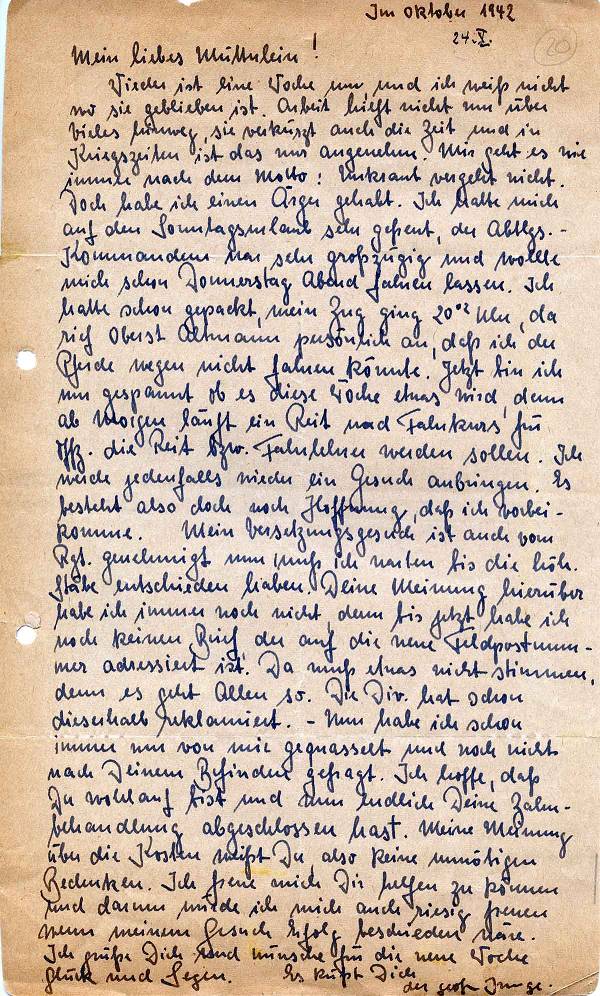 Im Oktober 1942
24. X.
20
Mein liebes Mütterlein!
Wieder ist eine Woche um, und ich weiß nicht
wo sie geblieben ist. Arbeit hilft nicht nur über
vieles hinweg, sie verkürzt auch die Zeit und in
Kriegszeiten ist das nur angenehm. Mir geht es wie
immer nach dem Motto: Unkraut vergeht nicht.
Doch habe ich einen Ärger gehabt. Ich hatte mich
auf den Sonntagsurlaub sehr gefreut, der Abtlgs.-
Kommandeur war sehr großzügig und wollte
mich schon Donnerstag Abend fahren lassen. Ich
hatte schon gepackt, mein Zug ging 20⁰² Uhr, da
rief Oberst Altmann persönlich an, daß ich der
Pferde wegen nicht fahren könnte. Jetzt bin ich
nur gespannt ob es diese Woche etwas wird, denn
ab Morgen läuft ein Reit und Fahrkurs für
Offz. die Reit bzw. Fahrlehrer werden sollen. Ich
werde jedenfalls wieder ein Gesuch anbringen. Es
besteht also doch noch Hoffnung, daß ich vorbei-
komme. Mein Versetzungsgesuch ist auch vom
Rgt. genehmigt nun muß ich warten bis die höh.
Stäbe entschieden haben. Deine Meinung hierüber
habe ich immer noch nicht, denn bis jetzt habe ich
noch keinen Brief, der auf die neue Feldpostnum-
mer adressiert ist. Da muß etwas nicht stimmen,
denn es geht Allen so. Die Div. hat schon
dieserhalb reklamiert. - Nun habe ich schon
immer nur von mir gequasselt und noch nicht
nach Deinem Befinden gefragt. Ich hoffe, daß
Du wohlauf bist und nun endlich Deine Zahn-
behandlung abgeschlossen hast. Meine Meinung
über die Kosten weißt Du, also keine unnötigen
Bedenken. Ich freue mich Dir helfen zu können
und darum würde ich mich auch riesig freuen
wenn meinem Gesuch Erfolg beschieden wäre.
Ich grüße Dich und wünsche für die neue Woche
Glück und Segen. Es küßt Dich
der große Junge.